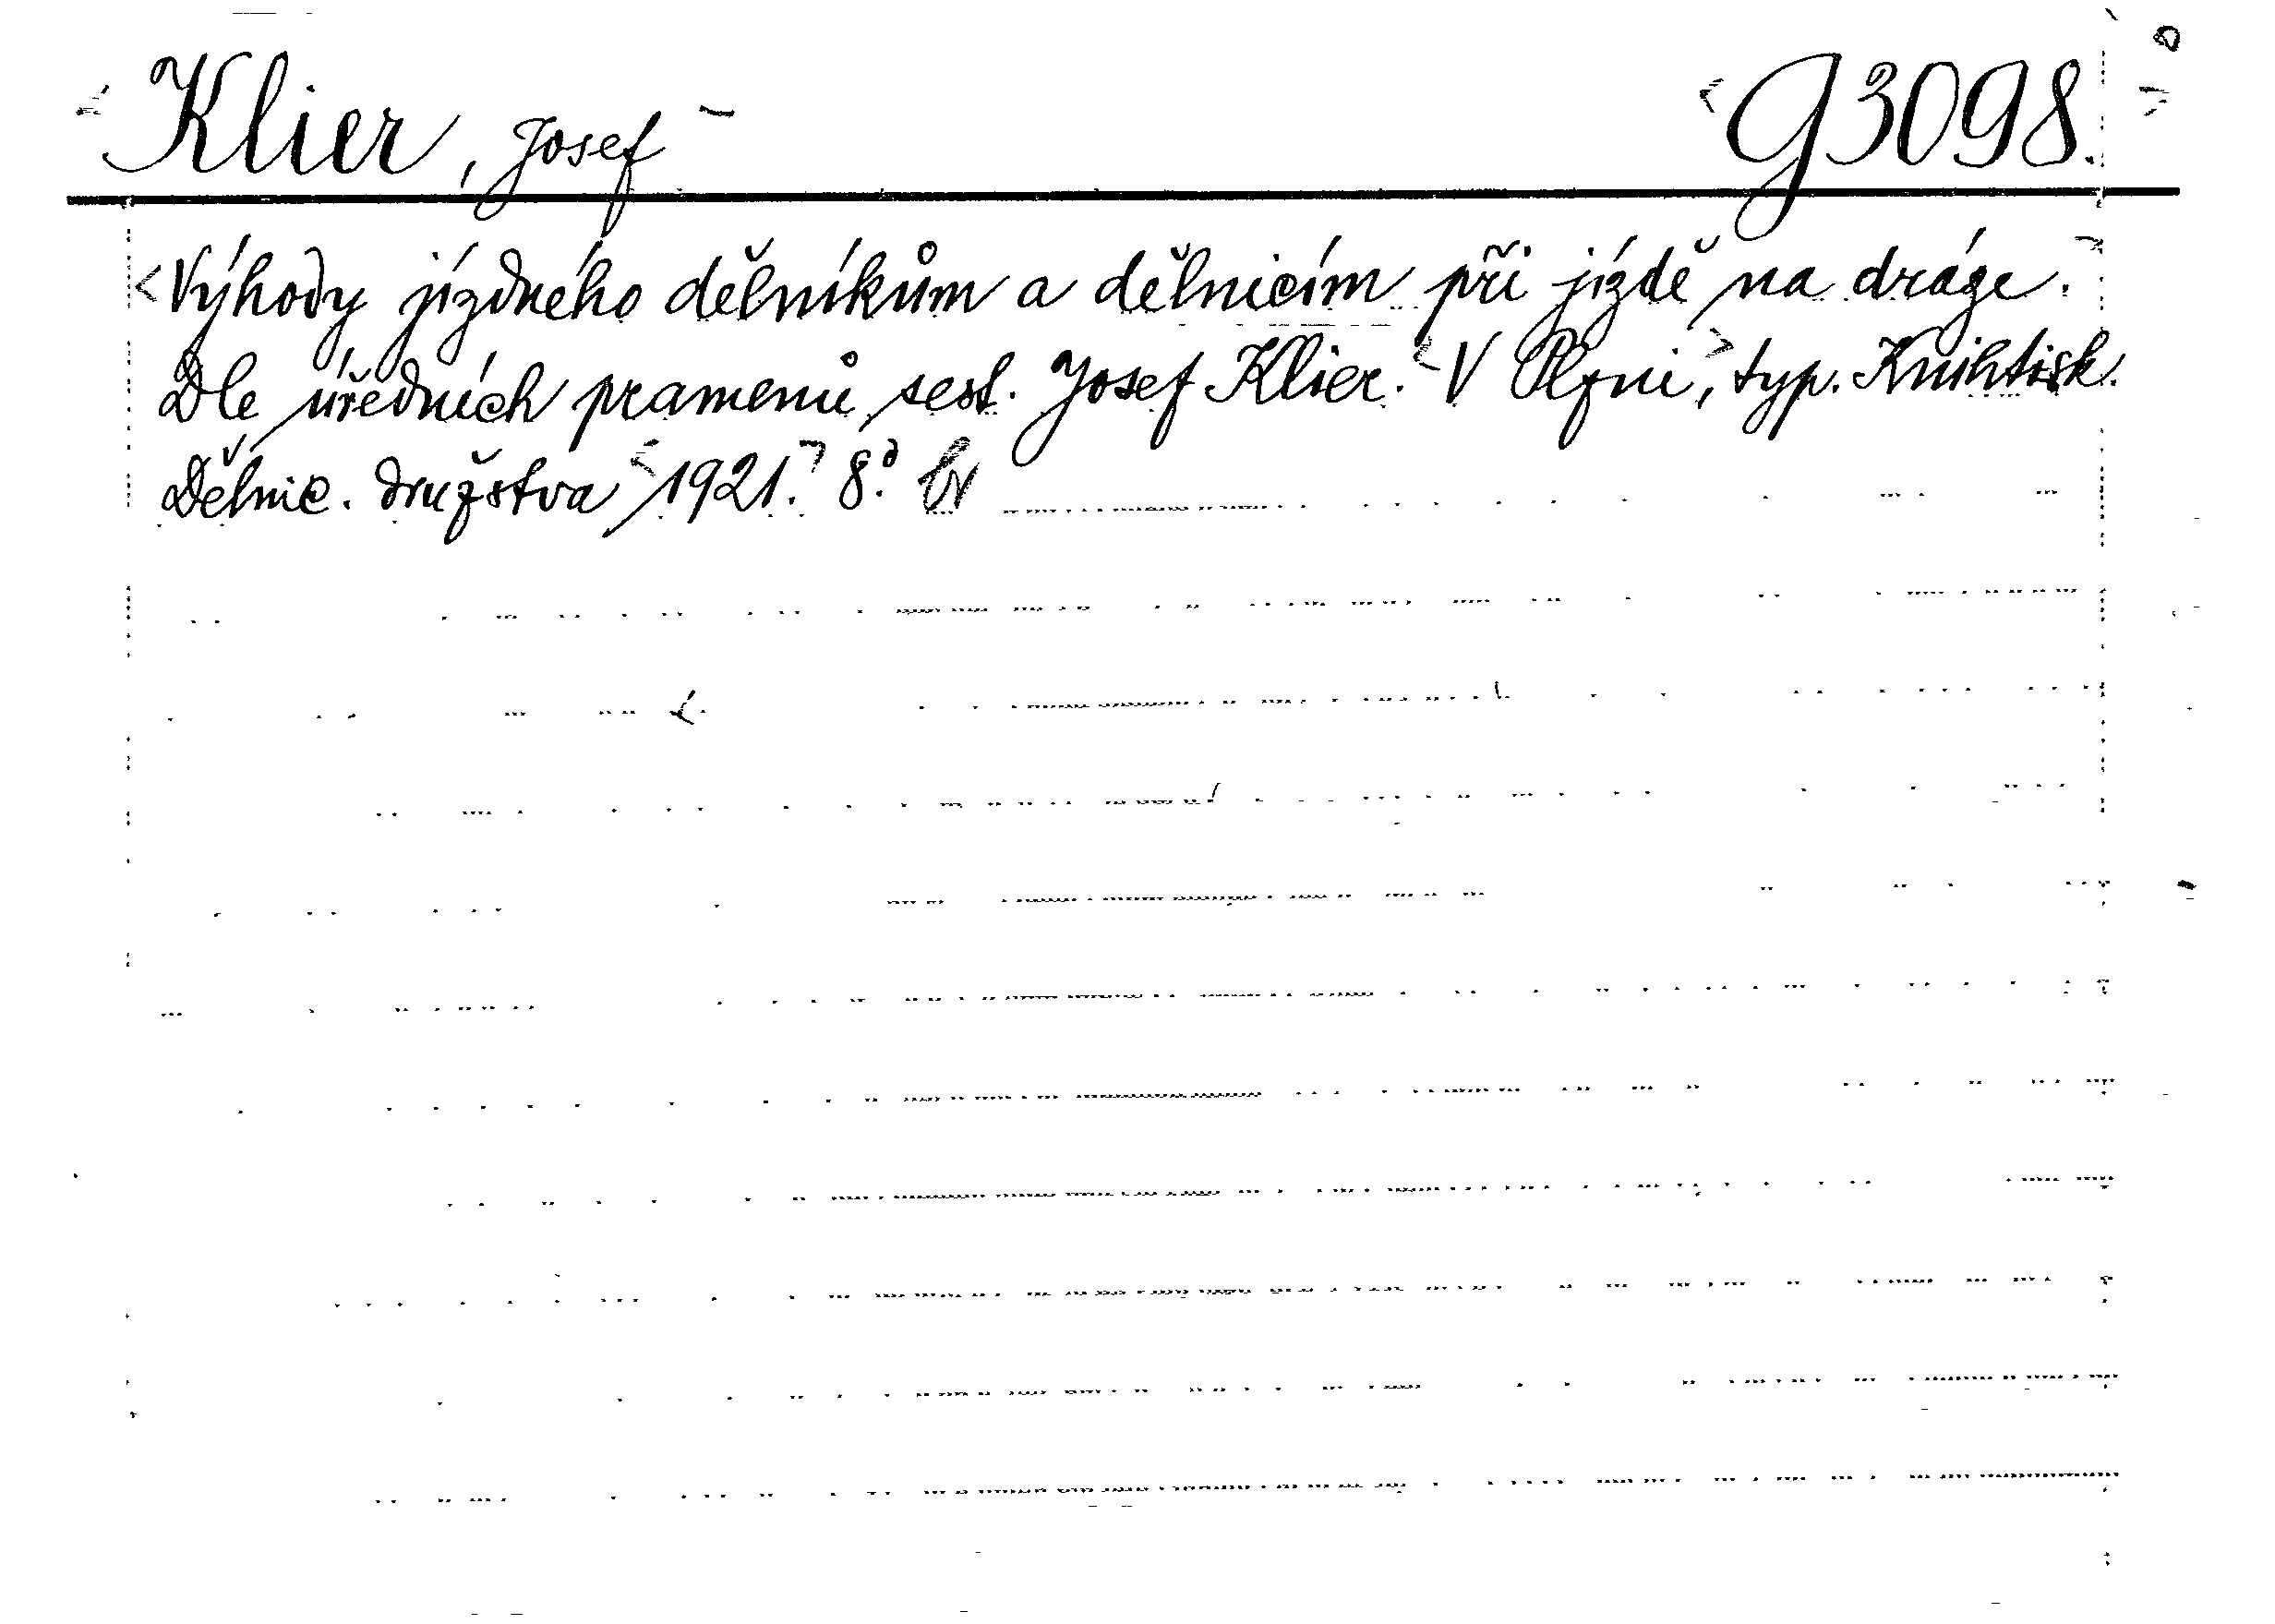 Klier, Josef G3098.
Výhody jízdného dělníkům a dělnicím při jízdě na dráze.
Dle úředních pramenů sest. Josef Klier. V Plzni, typ. Knihtisk.
Dělnic. družstva 1921. 8°. br